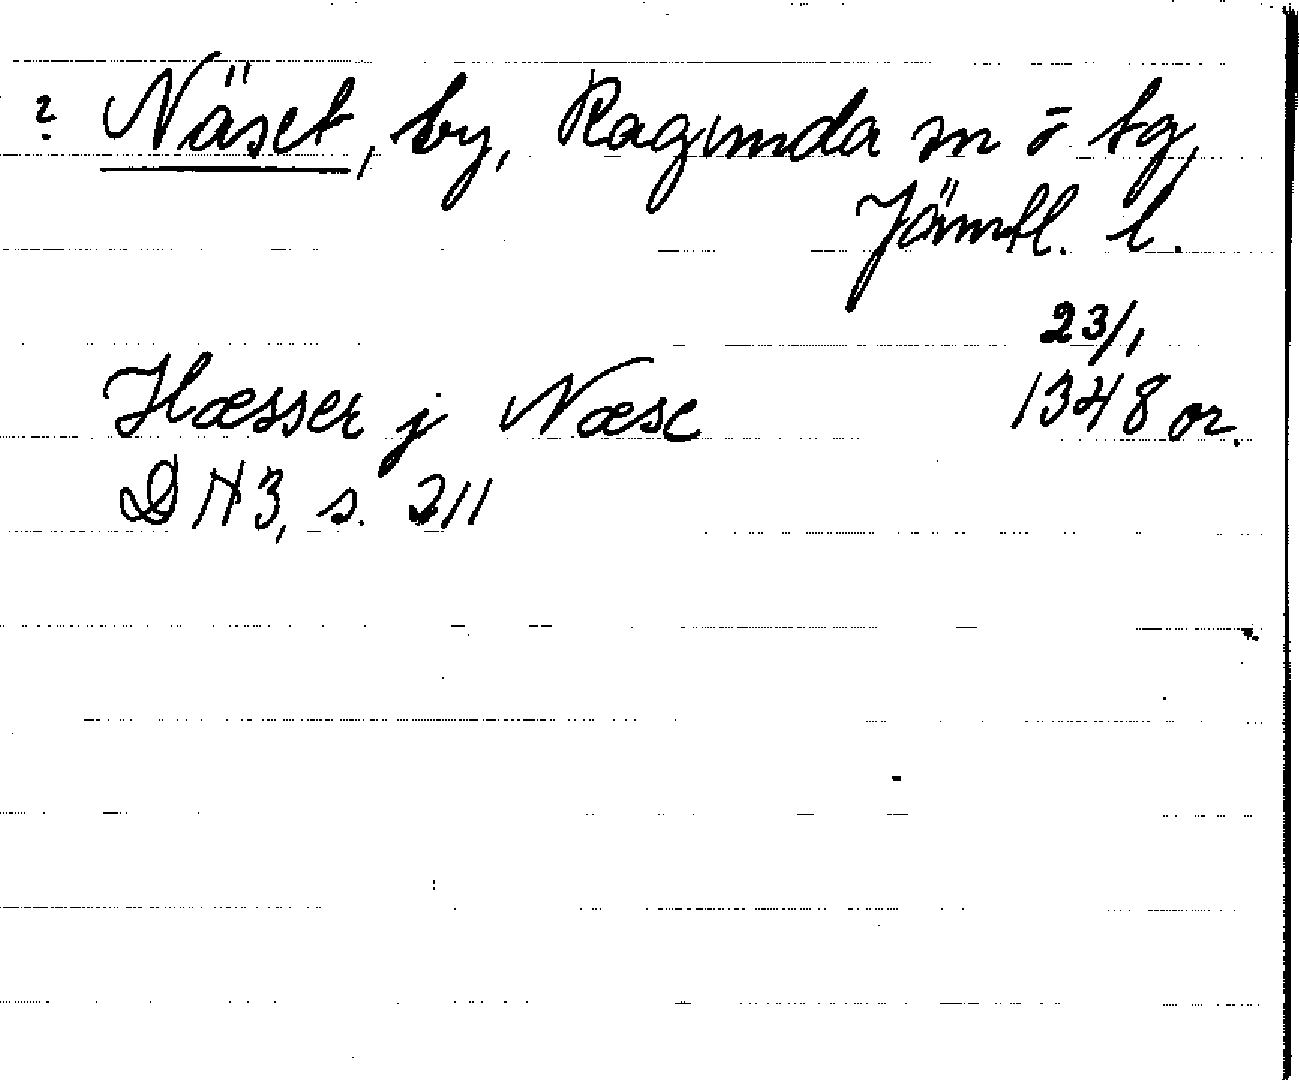 ? Näset, by, Ragunda sn o tg,
Jämtl. l.
23/1
Hæsser j Næse 1348 or.
DN 3, s. 211